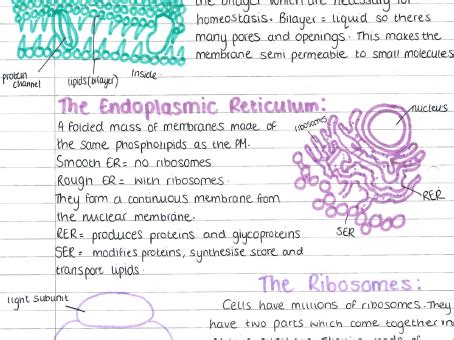 the bilayer which are necessary for
homeostasis. Bilayer = liquid so theres
many pores and openings. This makes the
membrane semi permeable to small molecules
protein channel
lipids (bilayer)
inside
The Endoplasmic Reticulum:
A folded mass of membranes made of
the same phospholipids as the PM.
Smooth ER = no ribosomes
Rough ER = with ribosomes.
They form a continuous membrane from
the nuclear membrane.
RER = produces proteins and glycoproteins
SER = modifies proteins, synthesise store and
transport lipids.
ribosomes
nucleus
RER
SER
The Ribosomes:
light subunit
Cells have millions of ribosomes. They
have two parts which come together in